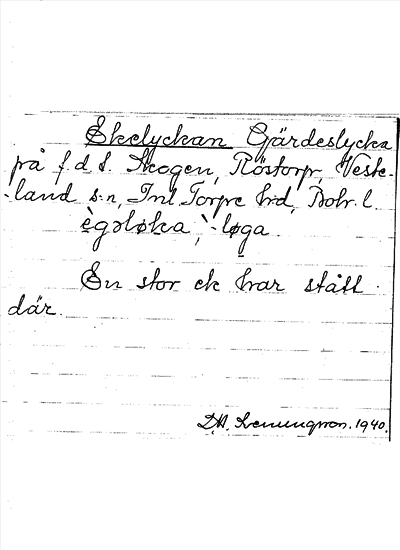 Ekelyckan Gärdeslycka
på f.d.t. Skogen, Röstorp, Veste-
-land s:n, Inl. Torpe h:d, Boh. l.
ègəlơka, ̀-lơga.
En stor ek har stått
där.
1940.